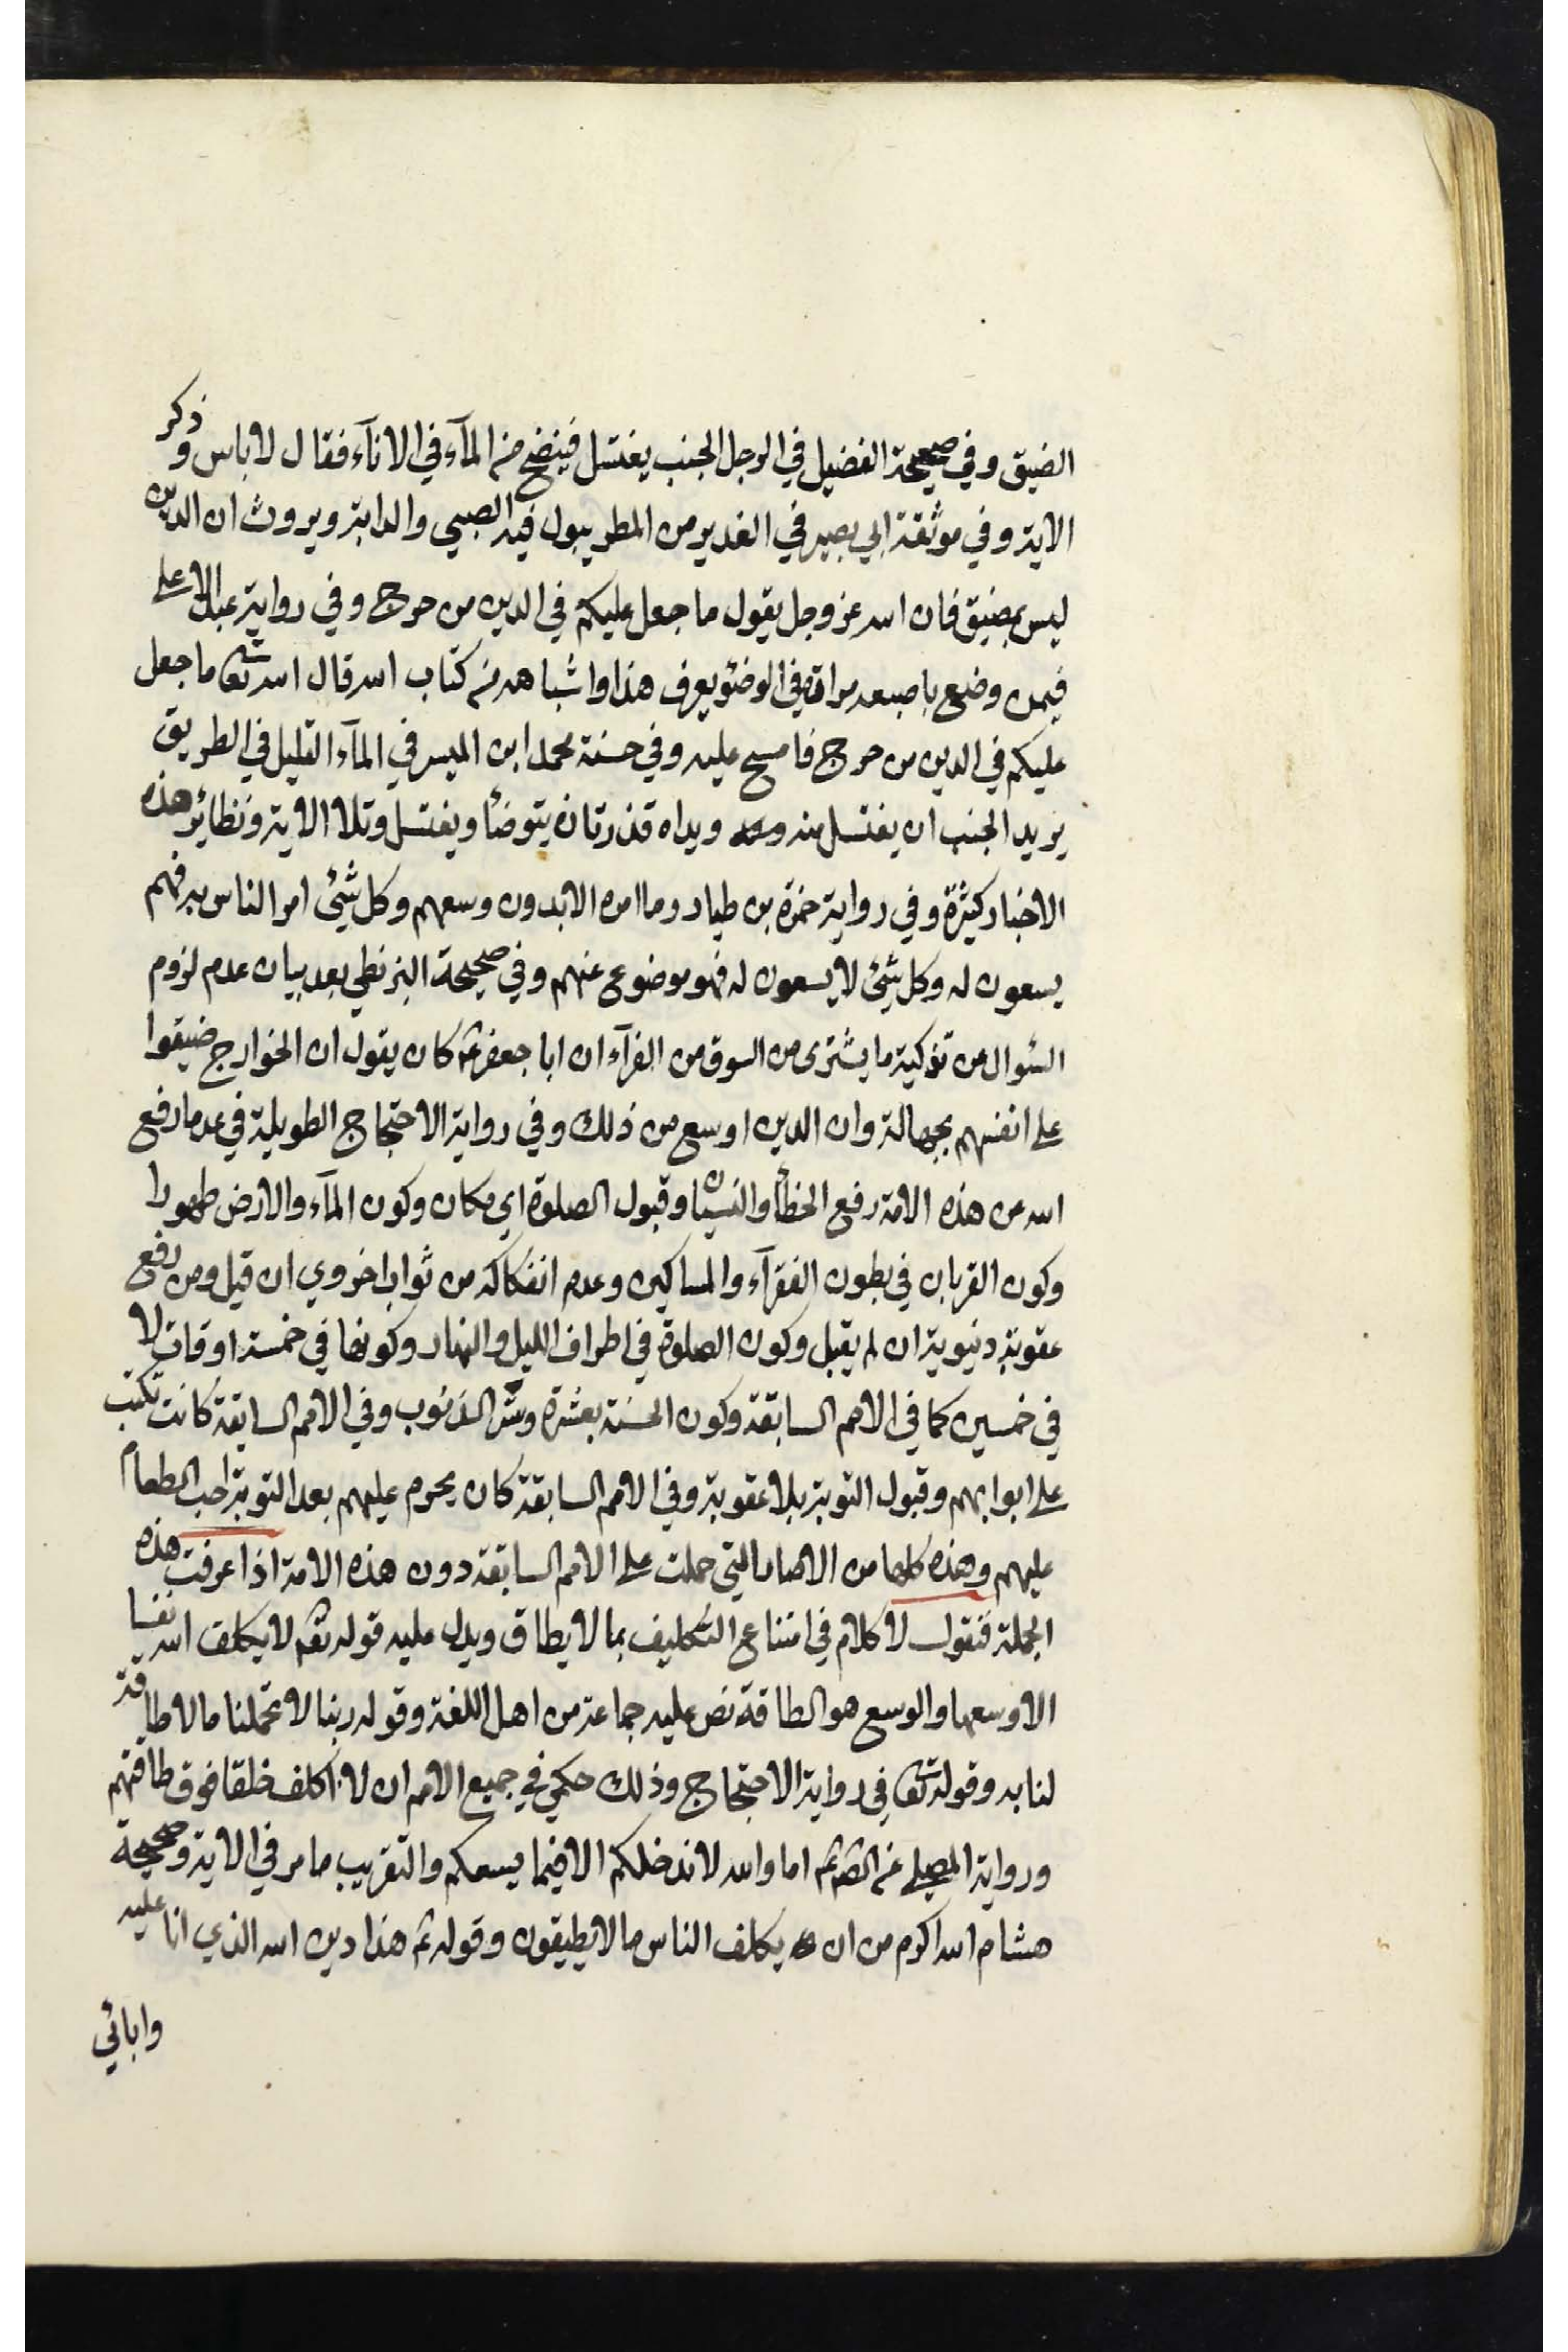 الضيق وفي صحيحة الفضيل في الرجل الجنب يغتسل فينضح من المآء في الانآء فقال لا باس وذكر
الاية وفي موثقة ابي بصير في الغدير من المطر يبول فيه الصبي والدابة ويروث ان الدين
ليس بمضيق فان الله عز وجل يقول ما جعل عليكم في الدين من حرج وفي رواية عبد الاعلى
فيمن وضع باصبعه مرارة في الوضؤ يعرف هذا واشباهه من كتاب الله قال الله تعالى ما جعل
عليكم في الدين من حرج فامسح عليه وفي حسنة محمد ابن الميسر في المآء القليل في الطريق
يريد الجنب ان يغتسل منه ويداه قذرتان يتوضأ ويغتسل وتلا الاية ونظائر هذه
الاخبار كثيرة وفي رواية حمزة بن طيار وما امره الا بدون وسعهم وكل شيئ امر الناس به فهم
يسعون له وكل شيئ لا يسعون له فهو موضوع عنهم وفي صحيحة البزنطي بعد بيان عدم لزوم
السؤال من تذكية ما يشترى من السوق من الفرآء ان ابا جعفر ع كان يقول ان الخوارج ضيقوا
على انفسهم بجهالة وان الدين اوسع من ذلك وفي رواية الاحتجاج الطويلة في عد ما رفع
الله عن هذه الامة رفع الخطأ والنسيان وقبول الصلوة اي مكان وكون المآء والارض طهورا
وكون القربان في بطون الفقرآء والمساكين وعدم انفكاكه من ثواب اخروي ان قبل ومن رفع
عقوبة دنيوية ان لم يقبل وكون الصلوة في اطراف الليل والنهار وكونها في خمسة اوقات لا
في خمسين كما في الامم السابقة وكون الحسنة بعشرة وستر الذنوب وفي الامم السابقة كانت تكتب
على ابوابهم وقبول التوبة بلا عقوبة وفي الامم السابقة كان يحرم عليهم بعد التوبة احب الطعام
عليهم وهذه كلها من الاصار التي حملت على الامم السابقة دون هذه الامة اذا عرفت هذه
الجملة فنقول لا كلام في امتناع التكليف بما لا يطاق ويدل عليه قوله تعم لا يكلف الله نفسا
الا وسعها والوسع هو الطاقة نص عليه جماعة من اهل اللغة وقوله ربنا لا تحملنا ما لا طاقة
لنا به وقوله تعالى في رواية الاحتجاج وذلك حكمي في جميع الامم ان لا اكلف خلقا فوق طاقتهم
ورواية الميصلي عن الصم ع اما والله لا ندخلكم الا فيما يسعكم والتقريب ما مر في الاية وصحيحة
هشام الله اكرم من ان يكلف الناس ما لا يطيقون وقوله ع هذا دين الله الذي انا عليه
وابائي